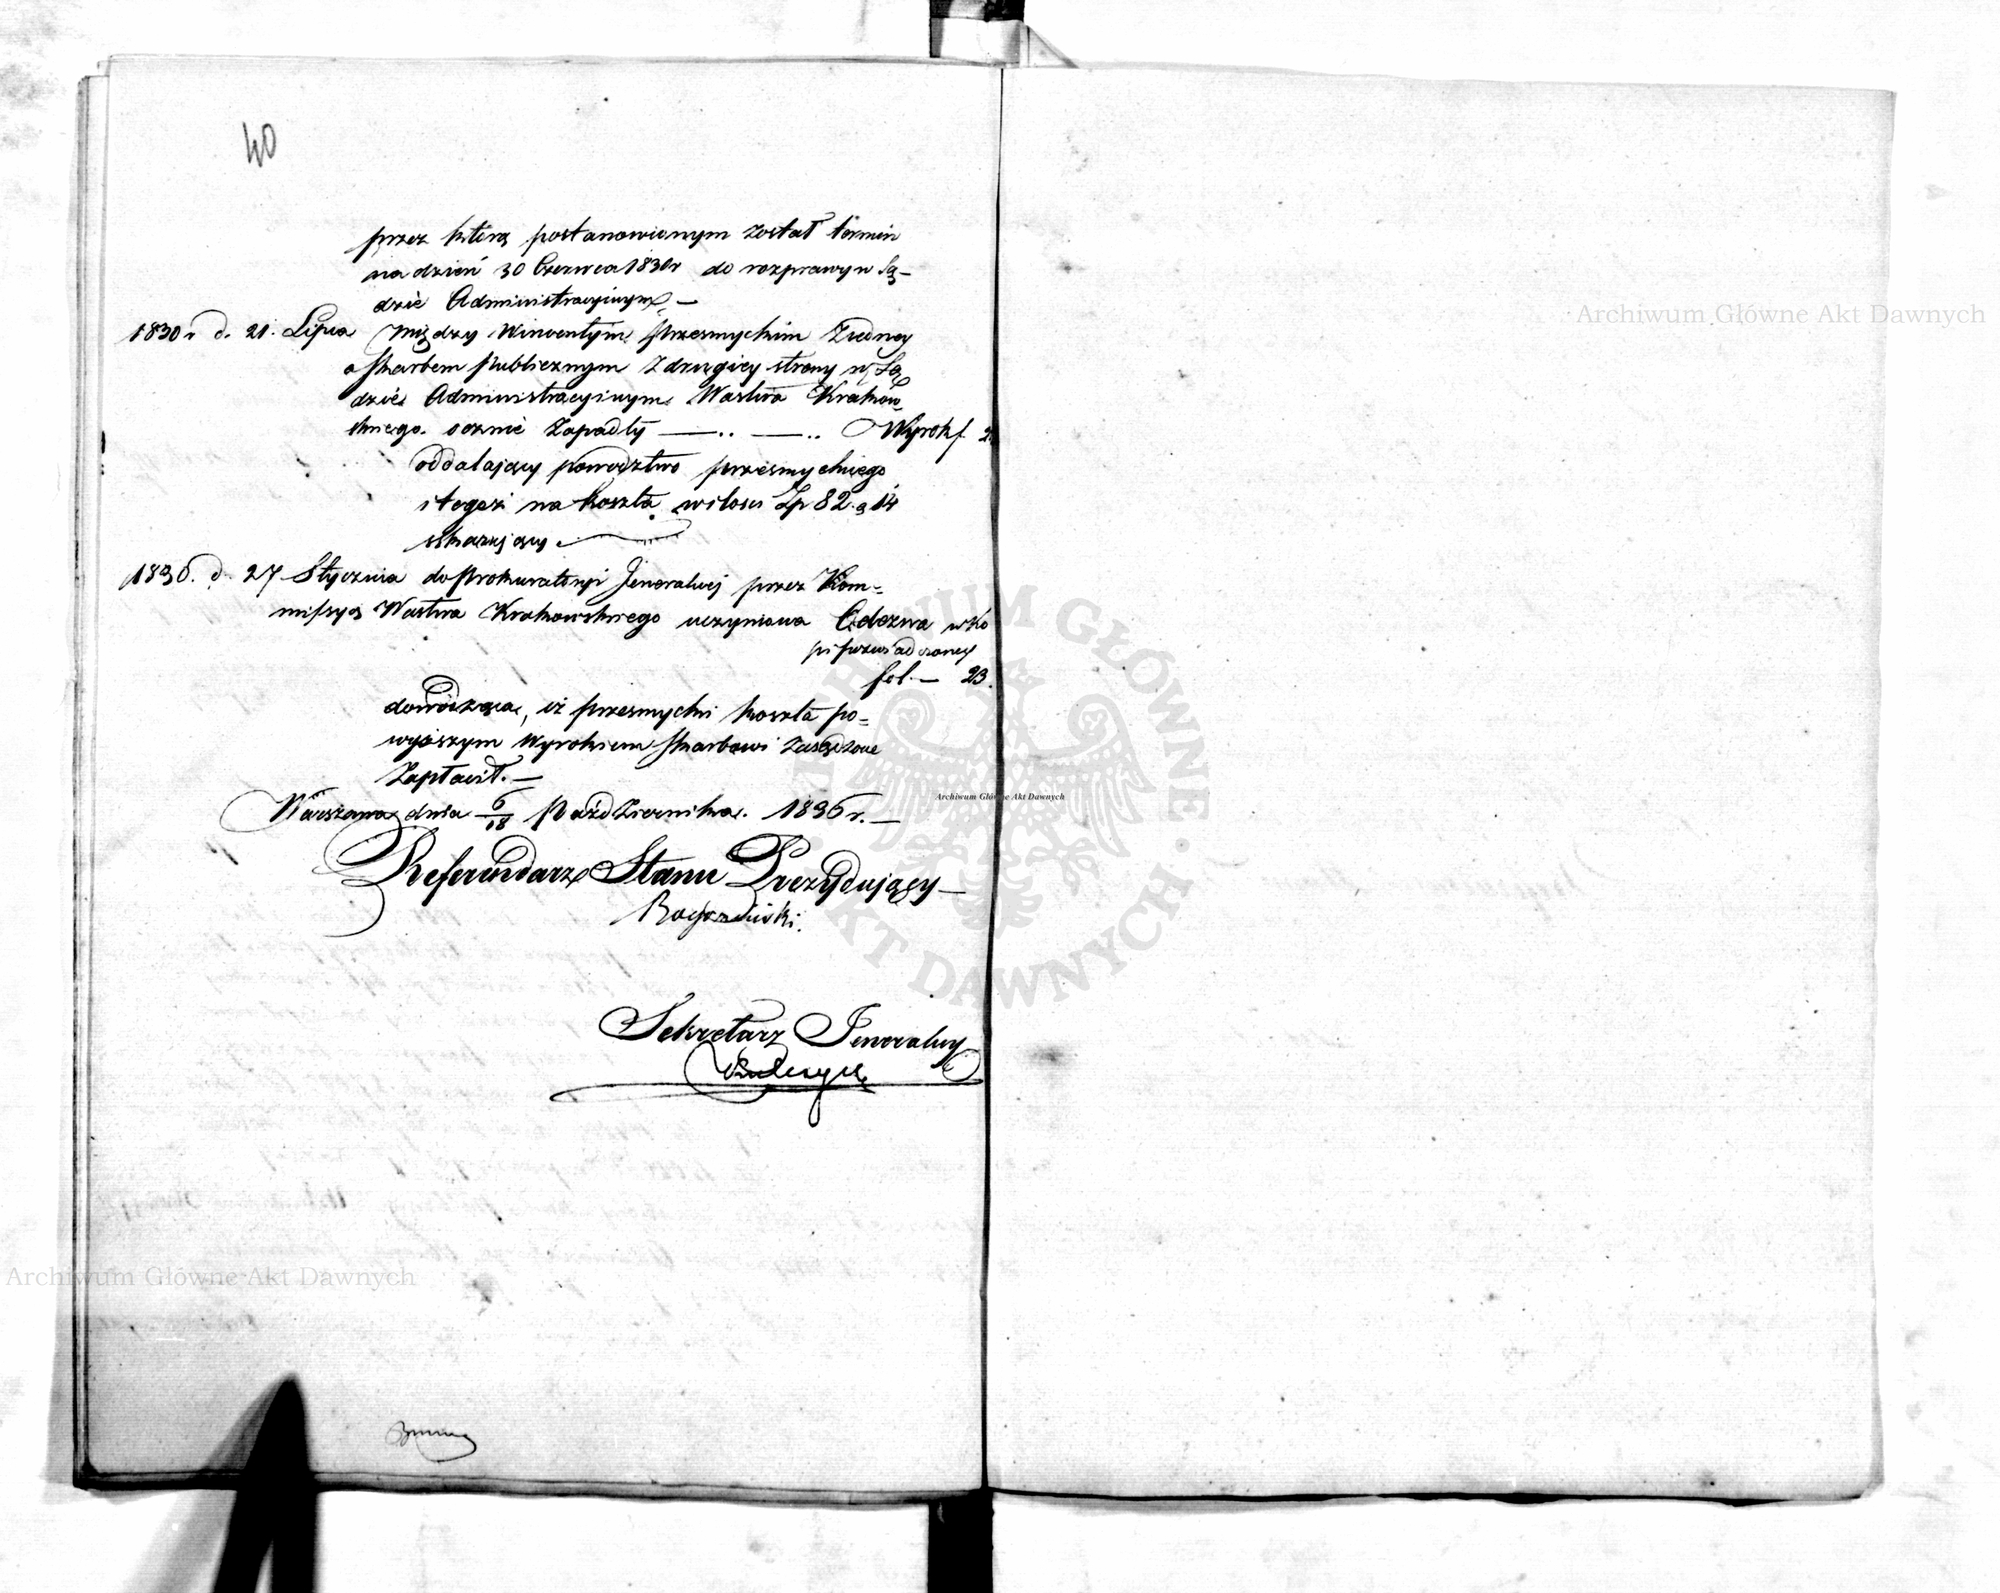 40
przez którą postanowionym został termin
na dzień 30 Czerwca 1830r do rozprawy w Są-
dzie Administracyjnym —
1830 r d. 21. Lipca Między Wincentym Przesmyckim Z jedney
a Skarbem Publicznym Z drugiey strony w Są
dzie Administracyinym Wastwa Krakow
skiego ocznie Zapadły —.. —.. Wyrok f. 2
oddalający powodztwo Przesmyckiego
i tegoż na Koszta w ilości Zp 82. g 14
skazujący
1836. d. 27 Stycznia do Prokuratoryi Jeneralnej przez Kom-
missyą Wastwa Krakowskiego uczyniona Odezwa w Ko
pi poświadczoney
fol. — 23.
dowodząca, iż Przesmycki koszta po-
wyższym Wyrokiem Skarbowi Zasądzone
Zapłacił. —
Warszawa dnia 6/18 Października. 1836 r. —
Referendarz Stanu Prezydujący —
Sekretarz Jeneralny
Archiwum Główne Akt Dawnych
Archiwum Główne Akt Dawnych
Archiwum Główne Akt Dawnych
ARCHIWUM GŁÓWNE · AKT DAWNYCH ·